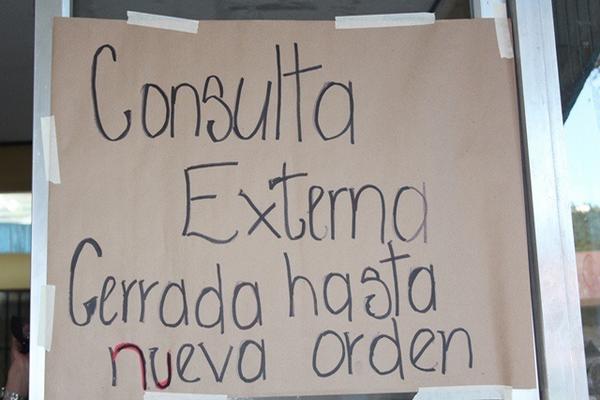 Consulta
Externa
Cerrada hasta
nueva orden